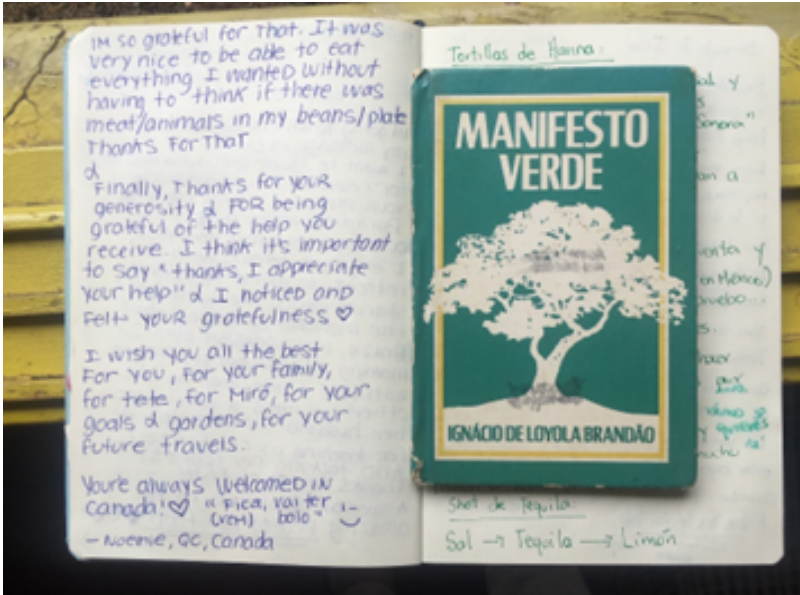 IM so grateful for That. It was
very nice to be able to eat
everything I wanted without
having to think if there was
meat/animals in my beans/plate
Thanks For That
&
Finally, Thanks for your
generosity & FOR being
grateful of the help you
receive. I think it's important
to say "thanks, I appreciate
your help" & I noticed and
Felt your gratefulness ♡
I wish you all the best
For you, For your family,
for tete, for Miró, for your
goals & gardens, for your
future travels.
You're always welcomed in
Canada! ♡ "Fica, vai ter
(vem) bolo" :-)
- Noemie, QC, Canada
Tortillas de Harina:
al y
Sonora"
an a
enta y
en México)
uebo...
s.
hacer
MANIFESTO
VERDE
IGNÁCIO DE LOYOLA BRANDÃO
Shot de Tequila:
Sal → Tequila → Limón